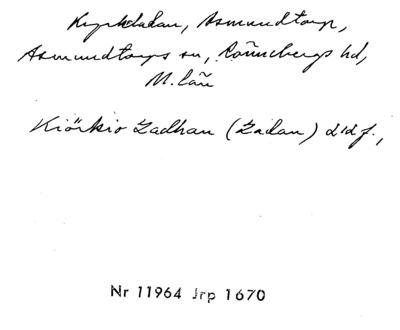 Kyrkladan, Asmundtorp,
Asmundtorps sn, Rönnebergs hd,
M. län
Kiörkio Ladhan (Ladan) 212 f.,
Nr 11964 Jrp 1670